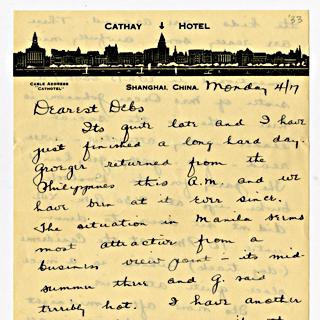 '33
CATHAY HOTEL
CABLE ADDRESS
"CATHOTEL"
SHANGHAI, CHINA. Monday 4/17
Dearest Debs
Its quite late and I have
just finished a long hard day.
George returned from the
Philippines this A.M. and we
have been at it ever since.
The situation in Manila seems
most attractive from a
business view point - its mid-
summer there and G. said
terribly hot. I have another